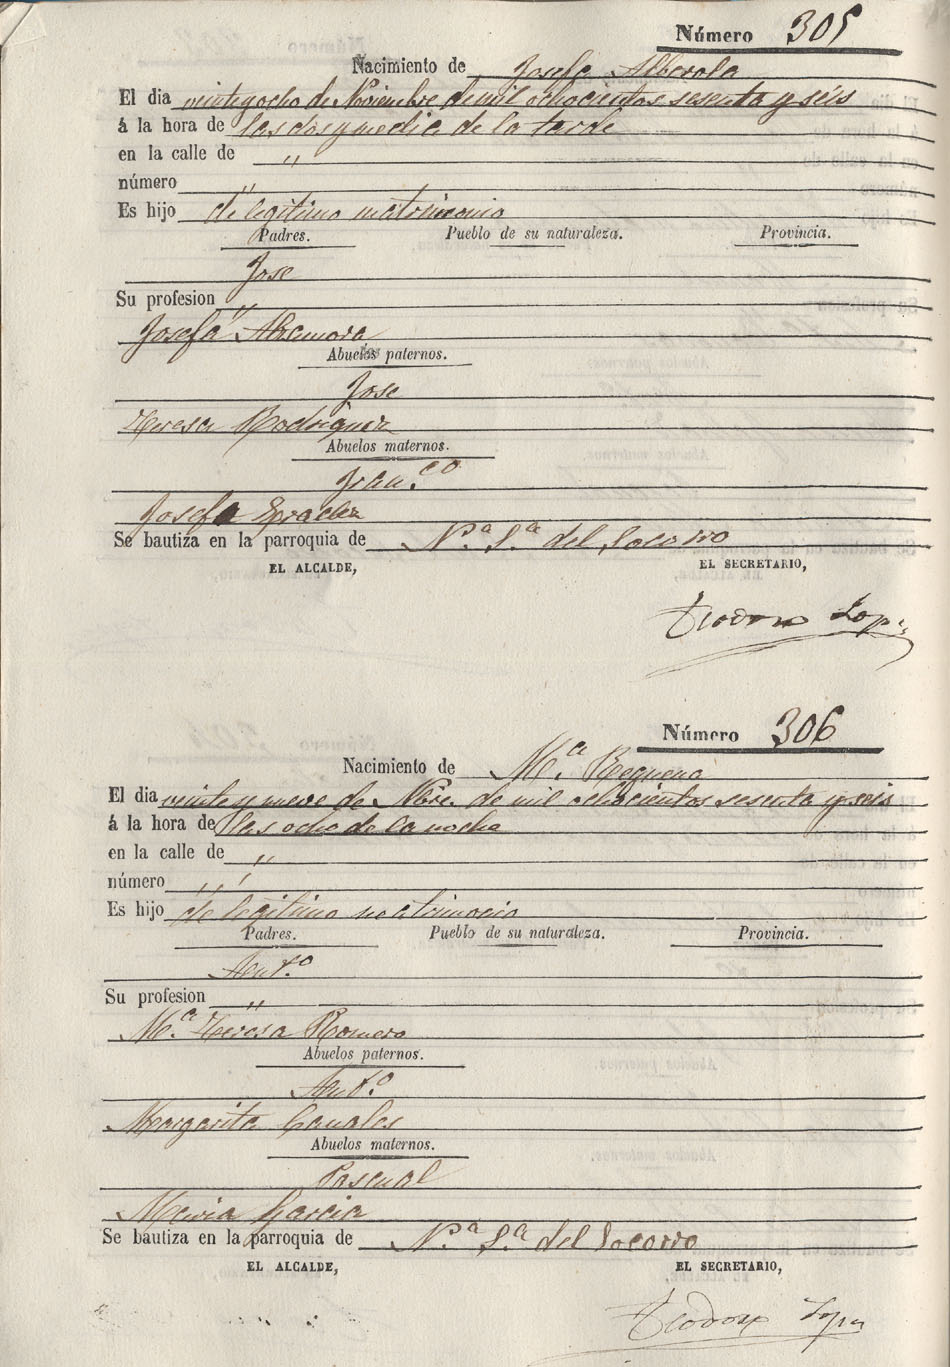 Número 305
Nacimiento de Josefa Alberola
El dia veinteyocho de Noviembre de mil ochocientos sesenta y séis
á la hora de las dos y media de la tarde
en la calle de "
número "
Es hijo de legitimo matrimonio
Padres. Pueblo de su naturaleza. Provincia.
Jose
Su profesion "
Josefa
Abuelos paternos.
Jose
Teresa Rodriguez
Abuelos maternos.
Fran.co
Josefa
Se bautiza en la parroquia de N.a S.a del Socorro
EL ALCALDE, EL SECRETARIO,
Teodoro Lopez
Número 306
Nacimiento de M.a Requena
El dia veinte y nueve de Nbre. de mil ochocientos sesenta y seis
á la hora de las ocho de la noche
en la calle de "
número " "
Es hijo de legitimo matrimonio
Padres. Pueblo de su naturaleza. Provincia.
Ant.o
Su profesion "
M.a Teresa Romero
Abuelos paternos.
Ant.o
Margarita Canales
Abuelos maternos.
Pascual
Maria Garcia
Se bautiza en la parroquia de N.a S.a del Socorro
EL ALCALDE, EL SECRETARIO,
Teodoro Lopez